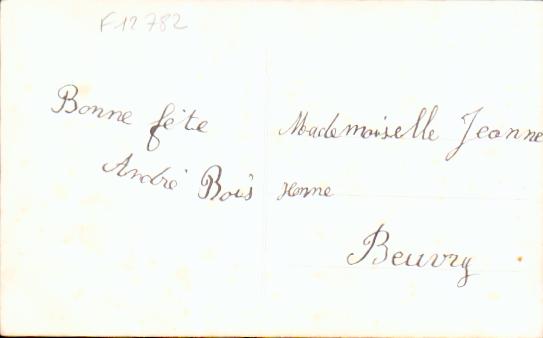 F12782
Bonne fête
André Bois
Mademoiselle Jeanne
Henne
Beuvry